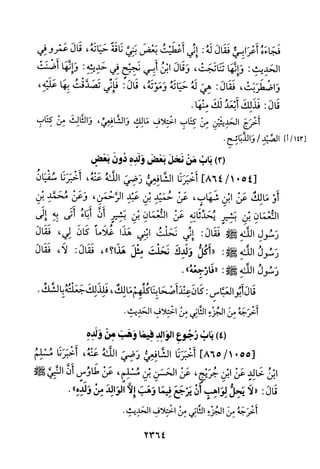 فَجَاءَهُ أَعْرَابِيٌّ فَقَالَ لَهُ: إِنِّي أَعْطَيْتُ بَعْضَ بَنِيَّ نَاقَةً حَيَاتَهُ، قَالَ عَمْرو فِي
الحَدِيثِ: وَإِنَّهَا تَنَاتَجَتْ، وَقَالَ ابْنُ أَبِي نَجِيْحٍ فِي حَدِيثِهِ: وَإِنَّهَا أَضْنَتْ
وَاضْطَرَبَتْ، فَقَالَ: هِيَ لَهُ حَيَاتَهُ وَمَوْتَهُ، قَالَ: فَإِنِّي تَصَدَّقْتُ بِهَا عَلَيْهِ،
قَالَ: فَذَلِكَ أَبْعَدُ لَكَ مِنْهَا.
أَخْرَجَ الحَدِيثَيْنِ مِنْ كِتَابِ اخْتِلَافِ مَالِكٍ وَالشَّافِعِيِّ، وَالثَّالِثَ مِنْ كِتَابِ
[١٤٣/أ] الصَّيْدِ / وَالذَّبَائِحِ.
(٣) بَابُ مَنْ نَحَلَ بَعْضَ وَلَدِهِ دُونَ بَعْضٍ
[٨٦٤/١٠٥٤] أَخْبَرَنَا الشَّافِعِيُّ رَضِيَ اللَّهُ عَنْهُ، أَخْبَرَنَا سُفْيَانُ
أَوْ مَالِكٌ عَنْ ابْنِ شِهَابٍ، عَنْ حُمَيْدِ بْنِ عَبْدِ الرَّحْمَنِ، وَعَنْ مُحَمَّدِ بْنِ
النُّعْمَانِ بْنِ بَشِيرٍ يُحَدِّثَانِهِ عَنْ النُّعْمَانِ بْنِ بَشِيرٍ أَنَّ أَبَاهُ أَتَى بِهِ إِلَى
رَسُولِ اللَّهِ ﷺ فَقَالَ: إِنِّي نَحَلْتُ ابْنِي هَذَا غُلَاماً كَانَ لِي، فَقَالَ
رَسُولُ اللَّهِ ﷺ: «أَكُلَّ وَلَدِكَ نَحَلْتَ مِثْلَ هَذَا؟»، فَقَالَ: لَا، فَقَالَ
رَسُولُ اللَّهِ ﷺ: «فَارْجِعْهُ».
قَالَ أَبُو العَبَّاسِ: كَانَ عِنْدَ أَصْحَابِنَا كُلِّهِمْ مَالِكٌ، فَلِذَلِكَ جَعَلْتُهُ بِالشَّكِّ.
أَخْرَجَهُ مِنَ الجُزْءِ الثَّانِي مِنِ اخْتِلَافِ الحَدِيثِ.
(٤) بَابُ رُجُوعِ الوَالِدِ فِيمَا وَهَبَ مِنْ وَلَدِهِ
[٨٦٥/١٠٥٥] أَخْبَرَنَا الشَّافِعِيُّ رَضِيَ اللَّهُ عَنْهُ، أَخْبَرَنَا مُسْلِمُ
ابْنُ خَالِدٍ عَنْ ابْنِ جُرَيْجٍ، عَنْ الحَسَنِ بْنِ مُسْلِمٍ، عَنْ طَاوُسٍ أَنَّ النَّبِيَّ ﷺ
قَالَ: «لَا يَحِلُّ لِوَاهِبٍ أَنْ يَرْجِعَ فِيمَا وَهَبَ إِلَّا الوَالِدَ مِنْ وَلَدِهِ».
أَخْرَجَهُ مِنَ الجُزْءِ الثَّانِي مِنِ اخْتِلَافِ الحَدِيثِ.
٢٣٦٤